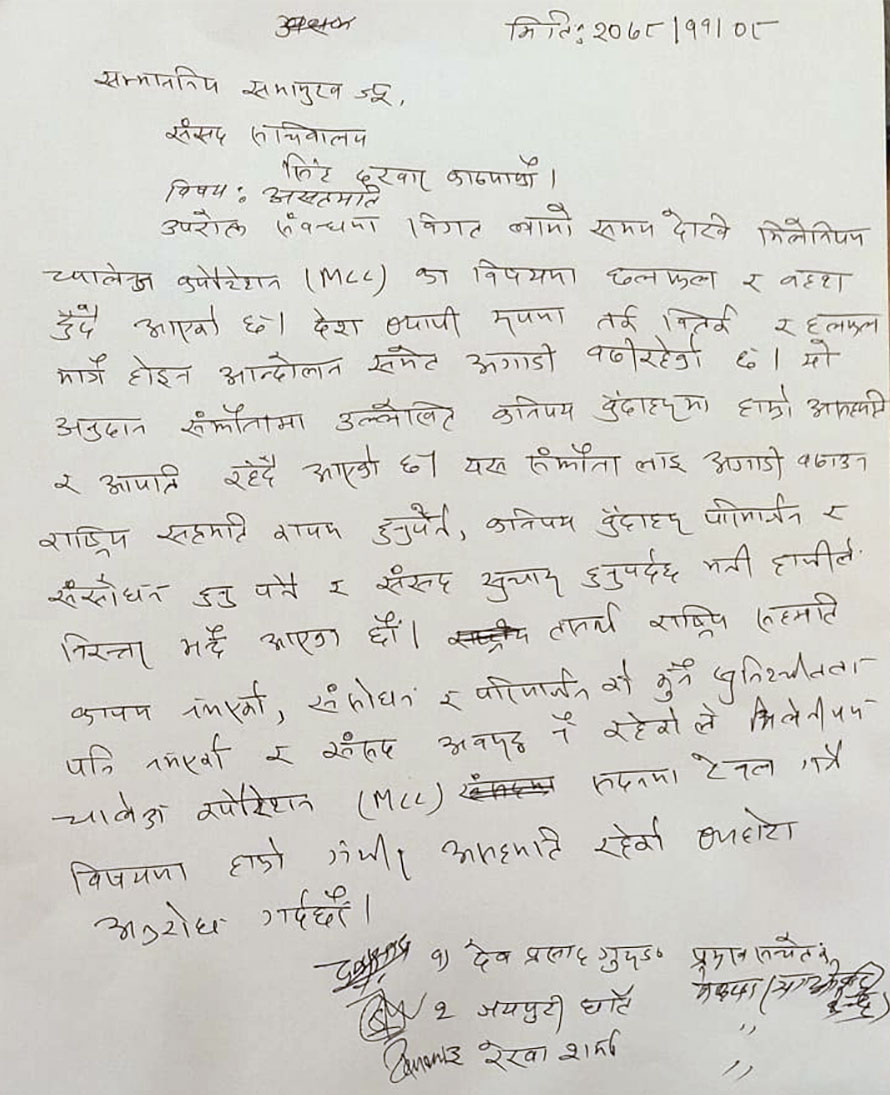 मिति: २०७८/११/०८
सम्माननिय सभामुख ज्यू,
संसद सचिवालय
सिंह दरवार काठमाडौं।
विषय: असहमति
उपरोक्त संवन्धमा विगत लामो समय देखि मिलेनियम
च्यालेन्ज कर्पोरेशन (MCC) का विषयमा छलफल र वहश
हुँदै आएको छ। देश व्यापी रुपमा तर्क वितर्क र छलफल
मात्रै होइन आन्दोलन समेत अगाडी वढीरहेको छ। यो
अनुदान संझौतामा उल्लेखित कतिपय वुंदाहरुमा हाम्रो असहमति
र आपत्ति रहँदै आएको छ। यस संझौता लाइ अगाडी वढाउन
राष्ट्रिय सहमति कायम हुनुपर्ने, कतिपय वुंदाहरु परिमार्जन र
संसोधन हुनु पर्ने र संसद सुचारु हुनुपर्दछ भनी हामीले
निरन्तर भन्दै आएका छौं। राष्ट्रिय सहमति
कायम नभएको, संसोधन र परिमार्जन को कुनै सुनिश्चीतता
पनि नभएको र संसद अवरुद्ध नै रहेको ले मिलेनीयम
च्यालेन्ज कर्पोरेशन (MCC) सदनमा टेवल गर्ने
विषयमा हाम्रो गंभीर असहमति रहेको व्यहोरा
अनुरोध गर्दछौं।
१) देव प्रसाद गुरुङ प्रमुख सचेतक
२ जयपुरी घर्ति नेकपा (माओवादी केन्द्र)
३ रेखा शर्मा ,,
,,